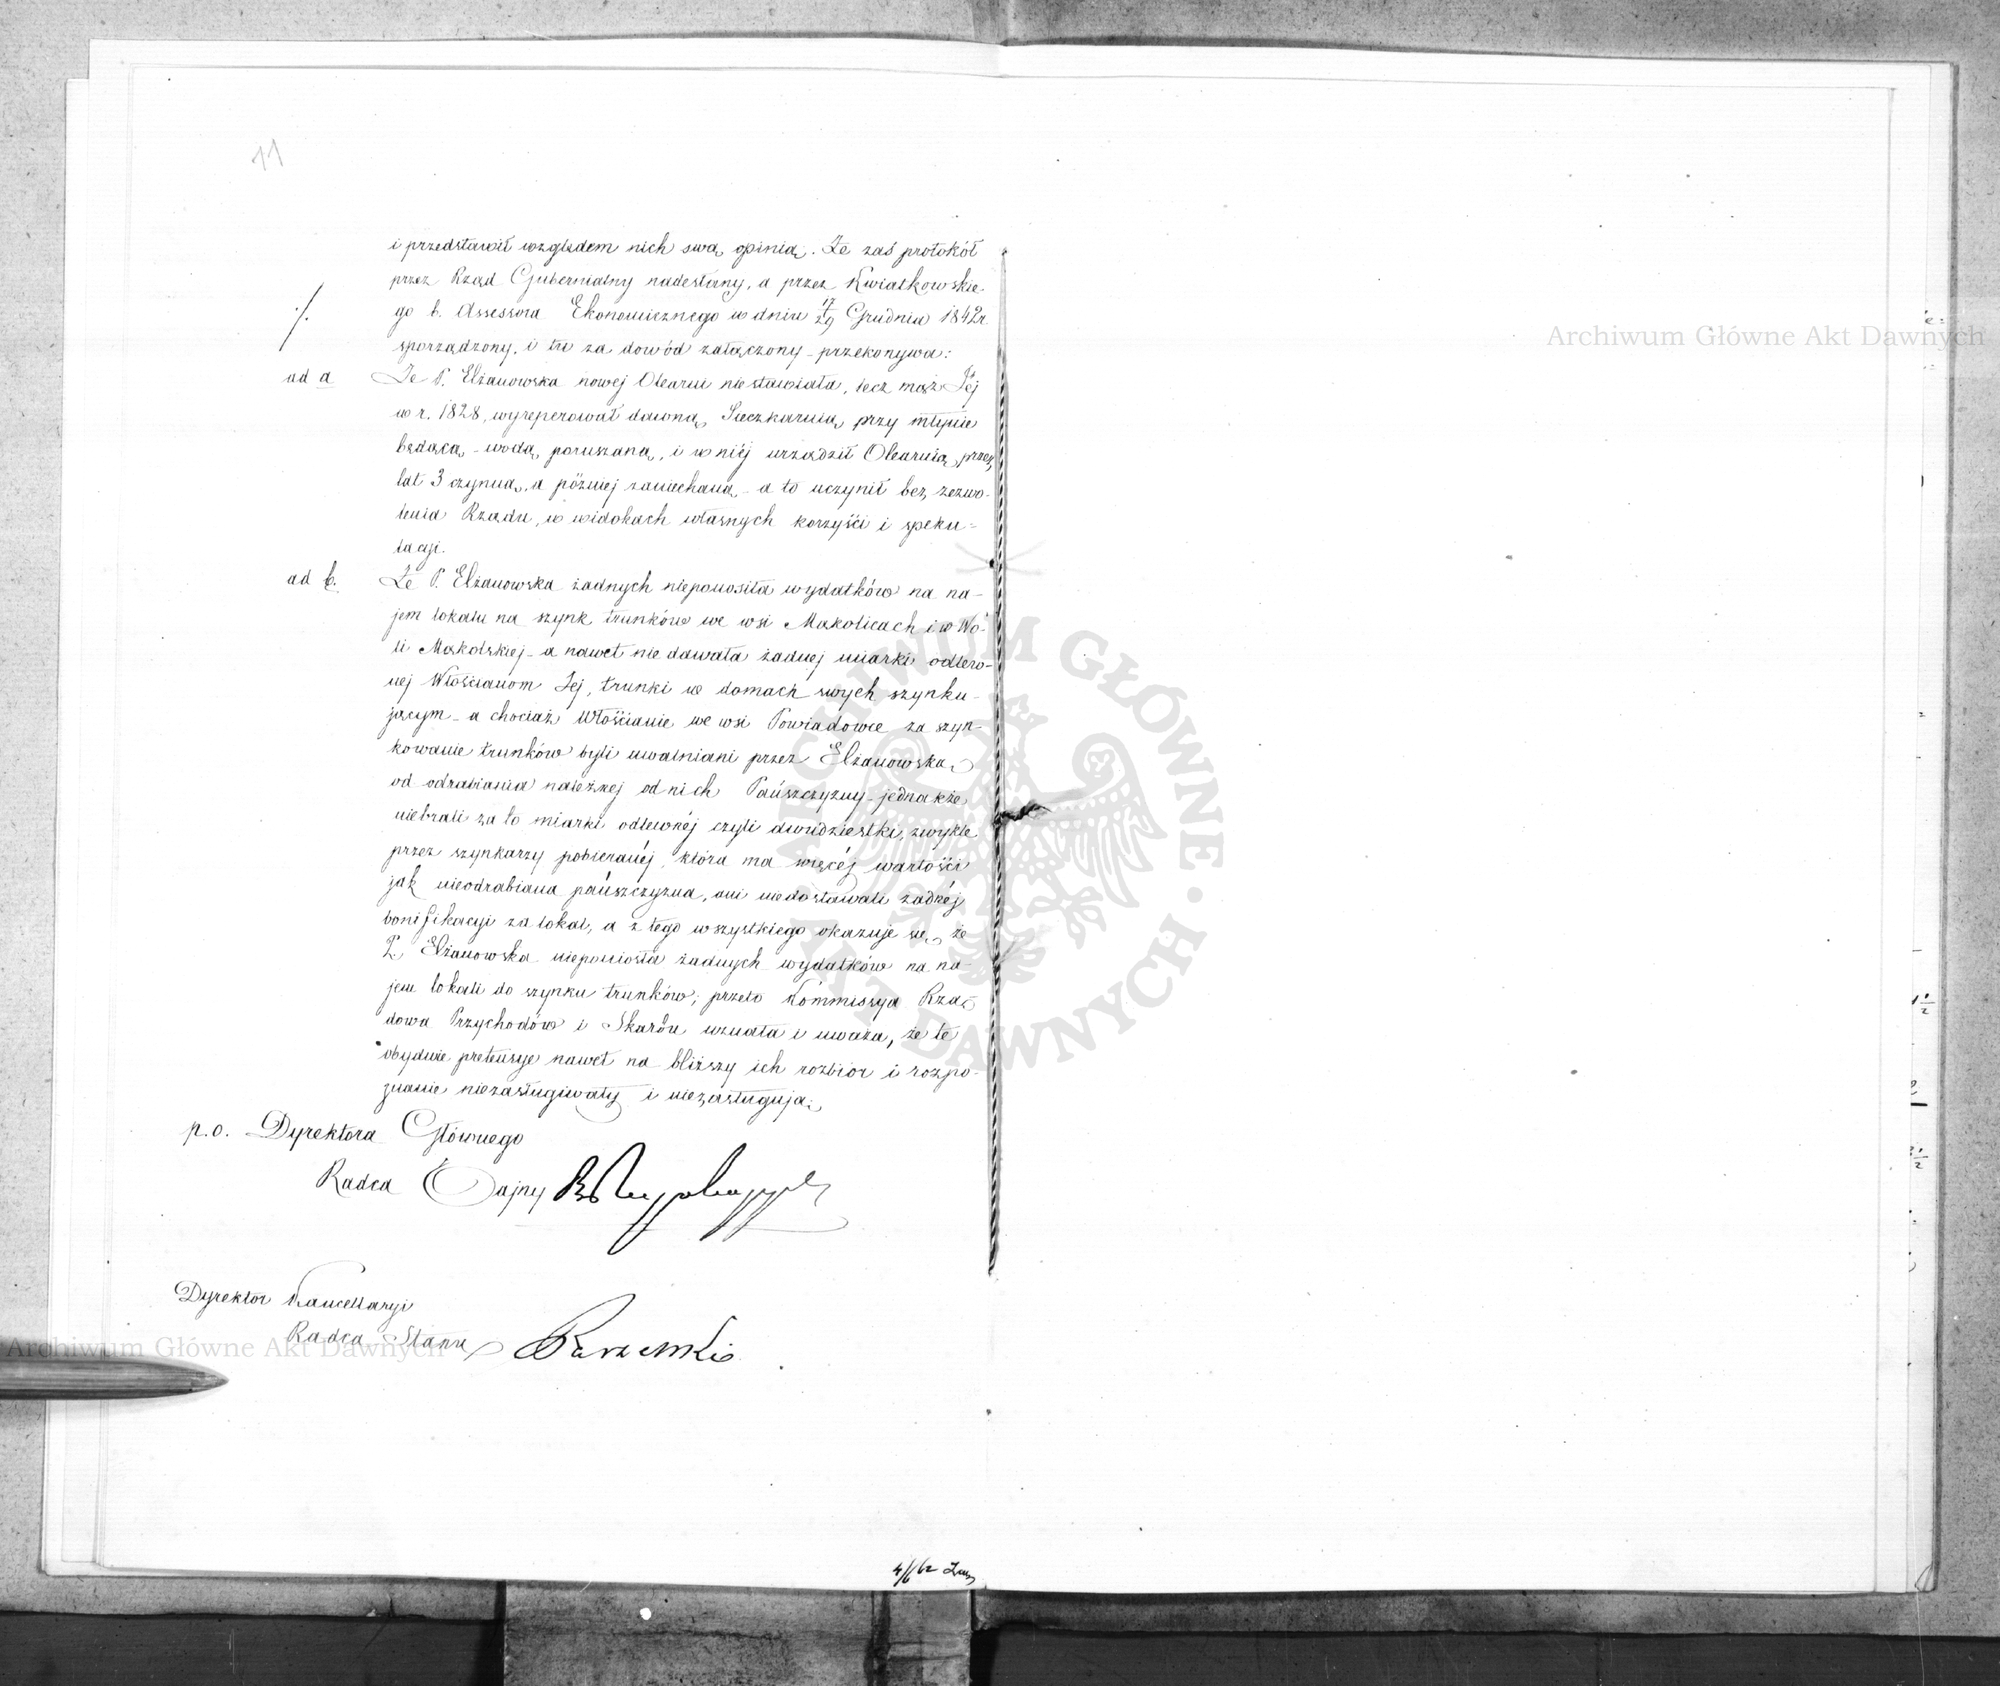 11
i przedstawił względem nich swą opinią. Że zaś protokół
przez Rząd Gubernialny nadesłany, a przez Kwiatkowskie-
./.
go b. Assessora Ekonomicznego w dniu 17/29 Grudnia 1842 r.
sporządzony, i tu za dowód załączony - przekonywa:
ad a
Że P. Elżanowska nowej Olearni niestawiała, lecz mąż Jéj
w r. 1828, wyreperował dawną Sieczkarnią przy młynie
będącą - wodą poruszaną, i w niéj urządził Olearnią, przez
lat 3 czynną, a późniéj zaniechaną - a to uczynił bez zezwo-
lenia Rządu, w widokach własnych korzyści i speku-
lacyi.
ad b.
Że P. Elżanowska żadnych nieponosiła wydatków na na-
jem lokalu na szynk trunków we wsi Mąkolicach i w Wo-
li Mąkolskiej - a nawet nie dawała żadnej miarki odlew-
nej Włościanom Jej, trunki w domach swych szynku-
jącym - a chociaż Włościanie we wsi Powiadowce za szyn-
kowanie trunków byli uwalniani przez Elżanowską
od odrabiania należnej od nich Pańszczyzny - jednakże
niebrali za to miarki odlewnéj czyli dwudziestki, zwykle
przez szynkarzy pobieranéj, która ma więcéj wartości
jak nieodrabiana pańszczyzna, ani niedostawali żadnéj
bonifikacyi za lokal, a z tego wszystkiego okazuje się, że
P. Elżanowska nieponiosła żadnych wydatków na na-
jem lokali do szynku trunków; przeto Kommissya Rzą-
dowa Przychodów i Skarbu uznała i uważa, że te
obydwie pretensye nawet na bliższy ich rozbiór i rozpo-
znanie niezasługiwały i niezasługują.
p. o. Dyrektora Głównego
Radca Tajny
Dyrektor Kancellaryi
Radca Stanu
Archiwum Główne Akt Dawnych
Archiwum Główne Akt Dawnych
ARCHIWUM GŁÓWNE • AKT DAWNYCH •